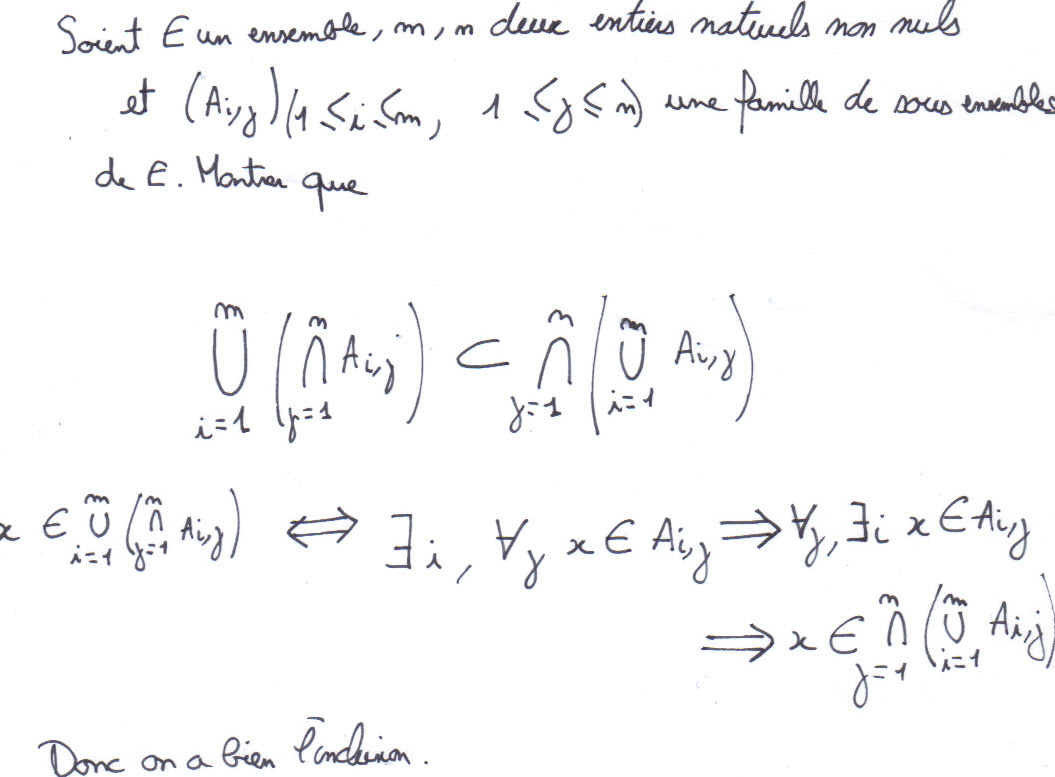 Soient E un ensemble, m, n deux entiers naturels non nuls
et (Ai,j)(1 ≤ i ≤ m, 1 ≤ j ≤ n) une famille de sous ensembles
de E. Montrer que
m ⋃ i=1 (n ⋂ j=1 Ai,j) ⊂ n ⋂ j=1 (m ⋃ i=1 Ai,j)
x ∈ m ∪ i=1 (n ∩ j=1 Ai,j) ⟺ ∃i, ∀j x ∈ Ai,j ⟹ ∀j, ∃i x ∈ Ai,j
⟹ x ∈ n ∩ j=1 (m ∪ i=1 Ai,j)
Donc on a bien l'inclusion.